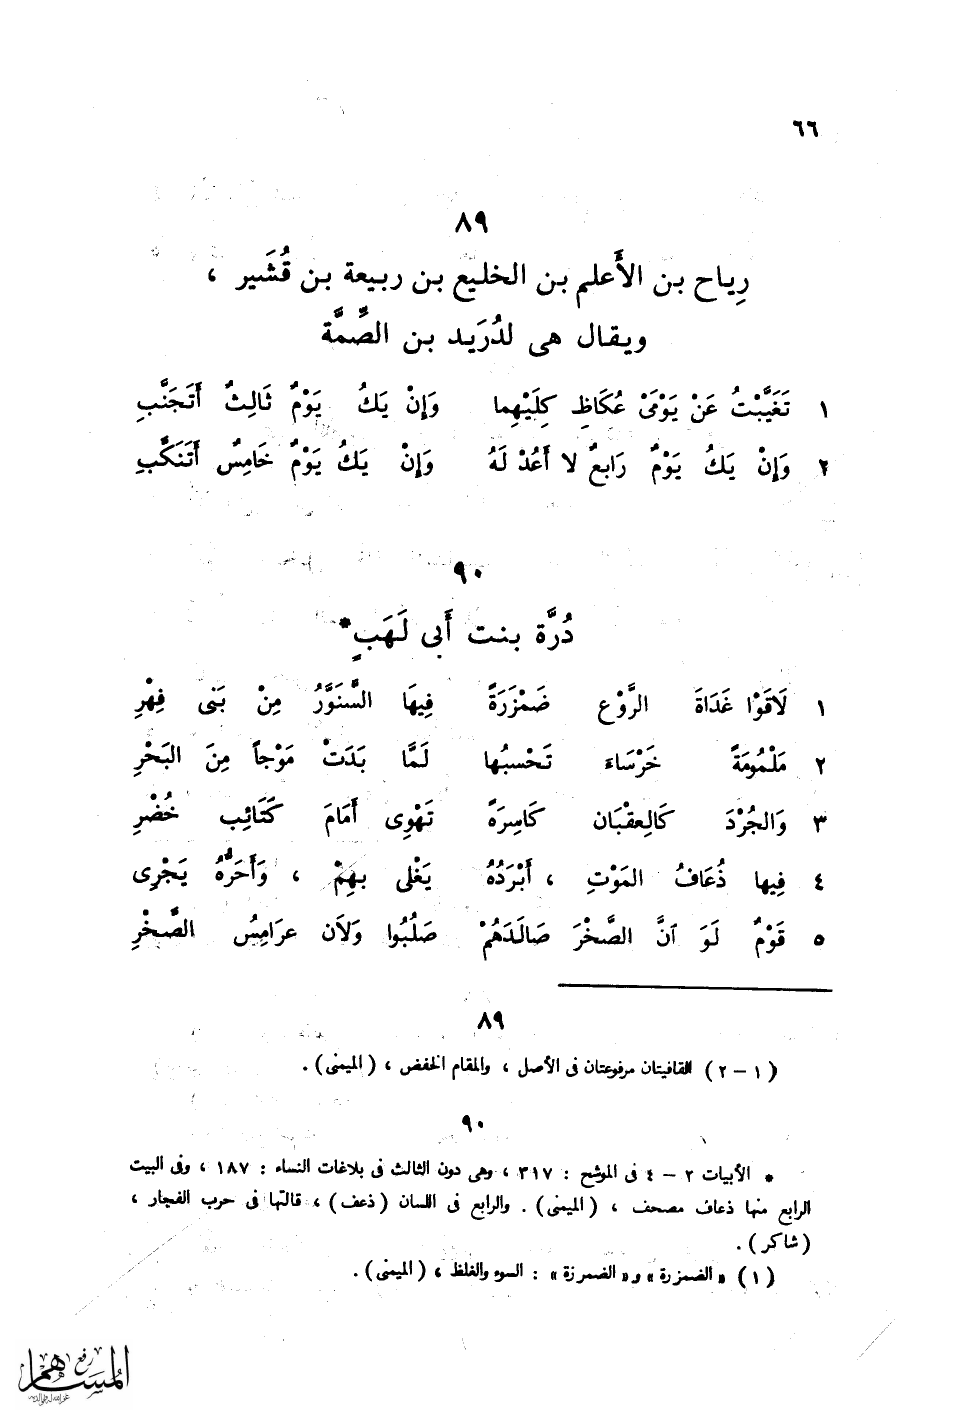 ٦٦
٨٩
رِياح بن الأَعلم بن الخليع بن ربيعة بن قُشَير ،
ويقال هى لدُرَيد بن الصِّمَّة
١ تَغَيَّبْتُ عَنْ يَوْمَىْ عُكَاظِ كِلَيْهِما وَإِنْ يَكُ يَوْمٌ ثَالِثٌ أَتَجَنَّبِ
٢ وَإِنْ يَكُ يَوْمٌ رَابِعٌ لا أَعُدْ لَهُ وَإِنْ يَكُ يَوْمٌ خَامِسٌ أَتَنَكَّبِ
٩٠
دُرَّة بنت أَبى لَهَبٍ*
١ لَاقَوْا غَدَاةَ الرَّوْعِ ضَمْزَرَةً فِيهَا السَّنَوَّرُ مِنْ بَنى فِهْرِ
٢ مَلْمُومَةً خَرْسَاءَ تَحْسبُها لَمَّا بَدَتْ مَوْجاً مِنَ البَحْرِ
٣ وَالجُرْدَ كَالعِقْبَان كَاسِرَةً تَهْوِى أَمَامَ كَتَائِب خُضْرِ
٤ فِيها ذُعَافُ المَوْتِ ، أَبْرَدُهُ يَغْلى بهِمْ ، وَأَحَرُّهُ يَجْرِى
٥ قَوْمٌ لَوَ آنَّ الصَّخْرَ صَالَدَهُمْ صَلُبُوا وَلَان عرَامِسُ الصَّخْرِ
٨٩
(١ – ٢) القافيتان مرفوعتان فى الأصل ، والمقام الخفض ، (الميمنى) .
٩٠
* الأبيات ٢ – ٤ فى الموشح : ٣١٧ ، وهى دون الثالث فى بلاغات النساء : ١٨٧ ، وفى البيت
الرابع منها ذعاف مصحف ، (الميمنى) . والرابع فى اللسان (ذعف) ، قالتها فى حرب الفجار ،
(شاكر) .
(١) « الضمزرة » و « الضمرزة » : السوء والغلظ ، (الميمنى) .
المساهم
رفع